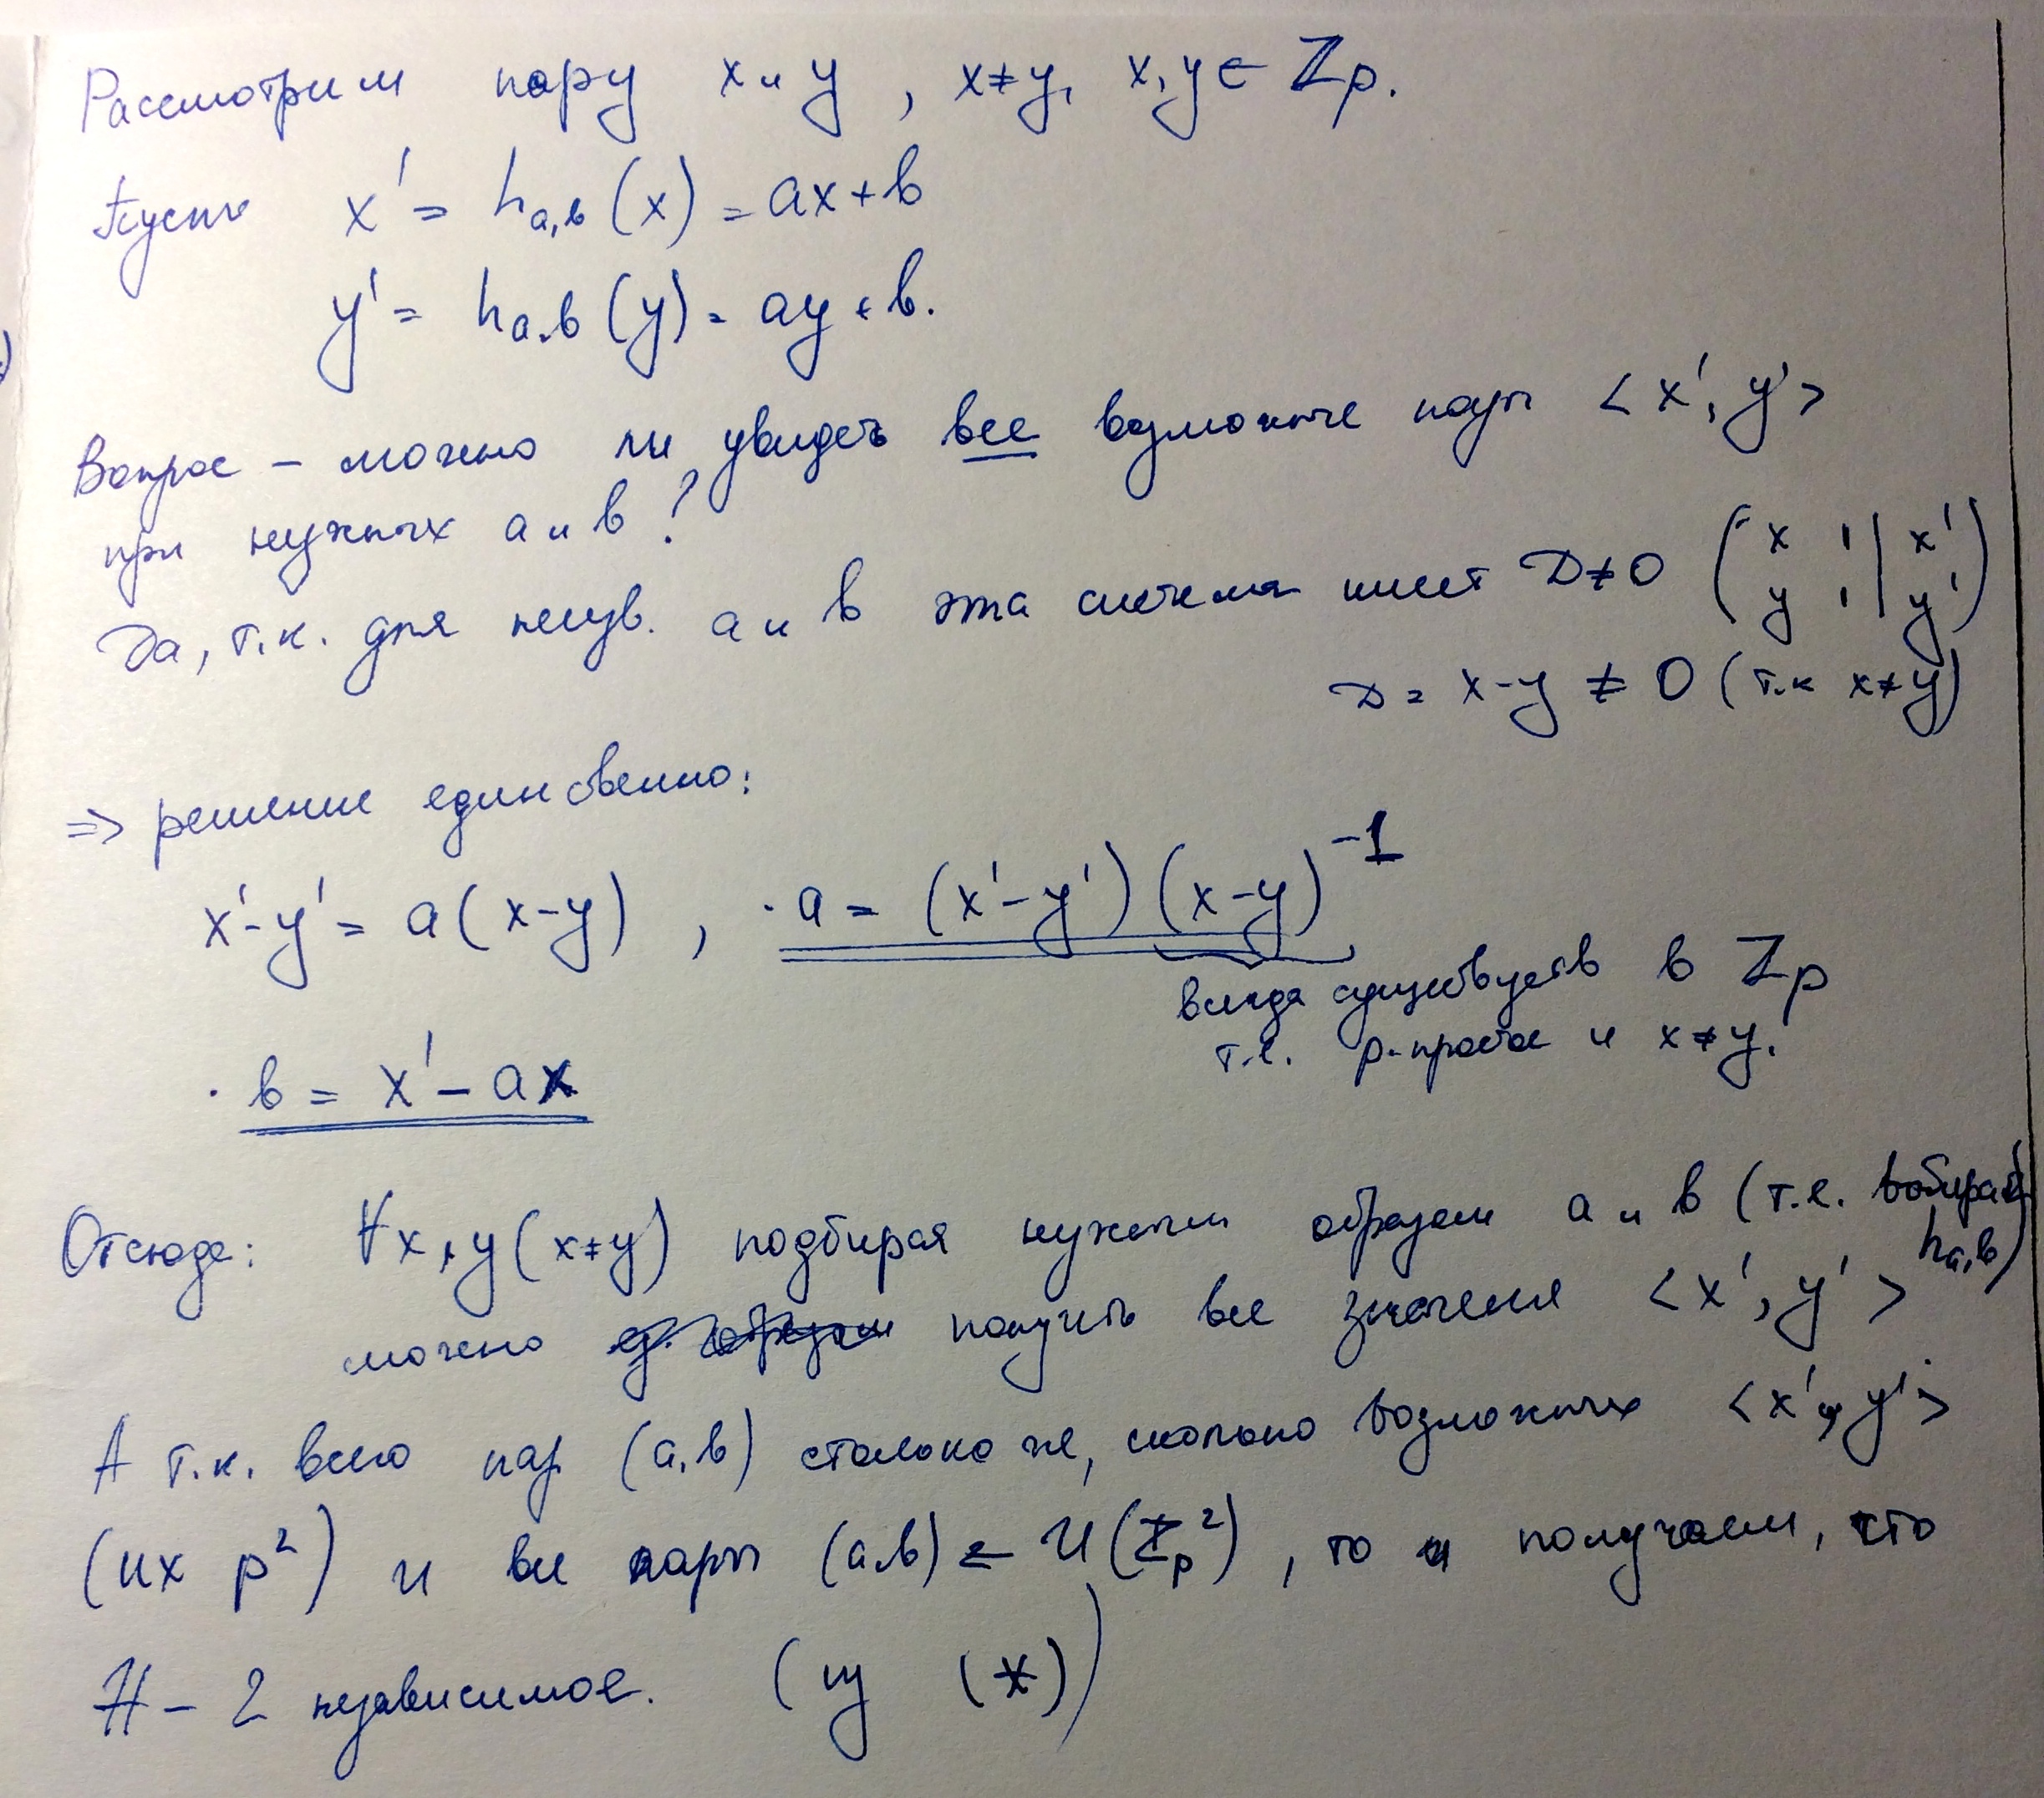 Рассмотрим пару x и y, x≠y, x,y ∈ ℤp.
Пусть x' = ha,b(x) = ax+b
y' = ha,b(y) = ay+b.
Вопрос – можно ли увидеть все возможные пары <x', y'>
при нужных a и b?
Да, т.к. для неизв. a и b эта система имеет D≠0 (x 1 | x'
y 1 | y')
D = x-y ≠ 0 (т.к x≠y)
=> решение единственно:
x'-y' = a(x-y), · a = (x'-y')(x-y)⁻¹
всегда существует в ℤp
т.к. p-простое и x≠y.
· b = x' - ax
Отсюда: ∀x,y (x≠y) подбирая нужным образом a и b (т.е. выбирая
ha,b)
можно получить все значения <x', y'>
А т.к. всего пар (a,b) столько же, сколько возможных <x', y'>
(их p²) и все пары (a,b) ← U(ℤp²), то и получаем, что
H – 2 независимое. (из (*))